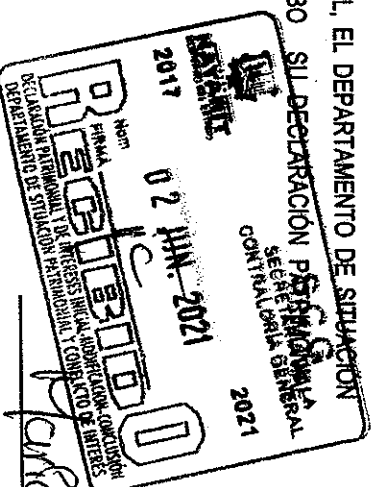 L, EL DEPARTAMENTO DE SITUACIÓN
BO SU DECLARACIÓN
S.C.G.
SECRETARÍA DE LA
CONTRALORÍA GENERAL
NAYARIT
2017 2021
02 JUN 2021
RECIBIDO
Nom
FIRMA
DECLARACIÓN PATRIMONIAL Y DE INTERESES INICIAL-MODIFICACIÓN-CONCLUSIÓN
DEPARTAMENTO DE SITUACIÓN PATRIMONIAL Y CONFLICTO DE INTERÉS